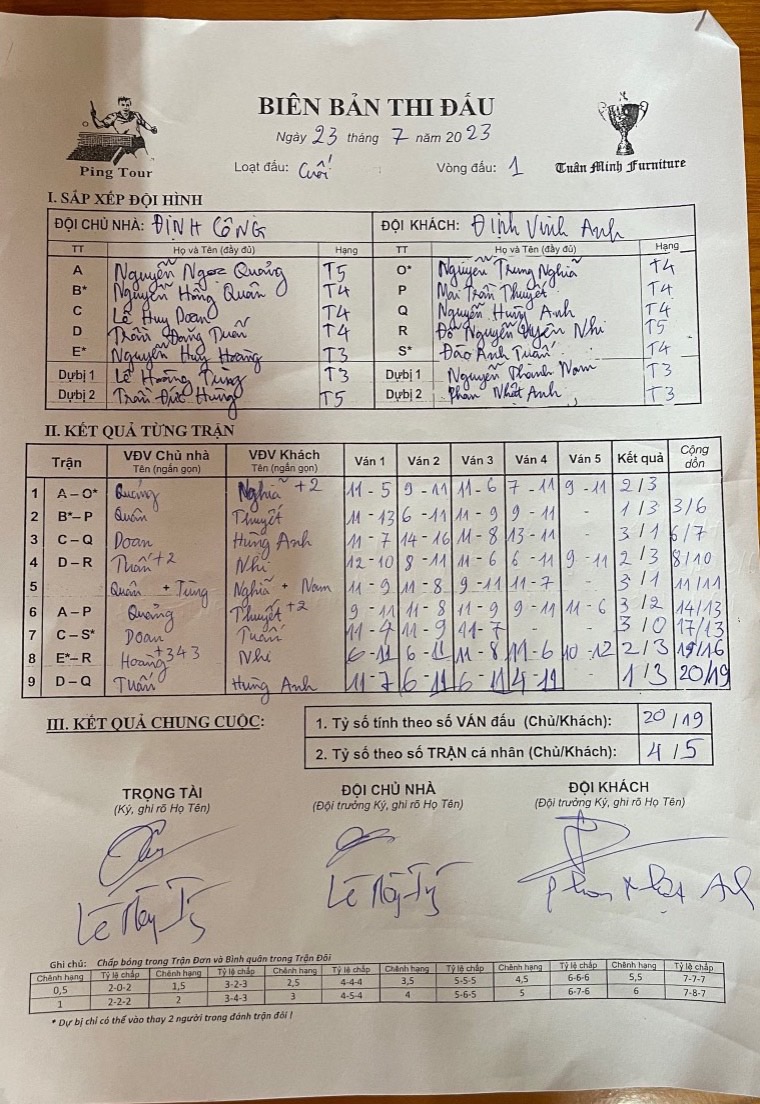 BIÊN BẢN THI ĐẤU
Ngày 23 tháng 7 năm 2023
Ping Tour
Loạt đấu: Cuối Vòng đấu: 1
Tuân Minh Furniture
I. SẮP XẾP ĐỘI HÌNH
ĐỘI CHỦ NHÀ: ĐỊNH CÔNG ĐỘI KHÁCH: Định Vinh Anh
TT Họ và Tên (đầy đủ) Hạng TT Họ và Tên (đầy đủ) Hạng
A Nguyễn Ngọc Quảng T5 O* Nguyễn Trung Nghĩa T4
B* Nguyễn Hồng Quân T4 P Mai Trần Thuyết T4
C Lê Huy Doan T4 Q Nguyễn Hùng Anh T4
D Trần Đăng Tuấn T4 R Đỗ Nguyễn Uyên Nhi T5
E* Nguyễn Huy Hoàng T3 S* Đào Anh Tuấn T4
Dự bị 1 Lê Hoàng Tùng T3 Dự bị 1 Nguyễn Thành Nam T3
Dự bị 2 Trần Đức Hùng T5 Dự bị 2 Phan Nhật Anh T3
II. KẾT QUẢ TỪNG TRẬN
Trận VĐV Chủ nhà Tên (ngắn gọn) VĐV Khách Tên (ngắn gọn) Ván 1 Ván 2 Ván 3 Ván 4 Ván 5 Kết quả Cộng dồn
1 A – O* Quảng Nghĩa +2 11 - 5 9 - 11 11 - 6 7 - 11 9 - 11 2 / 3
2 B* – P Quân Thuyết 11 - 13 6 - 11 11 - 9 9 - 11 - 1 / 3 3/6
3 C – Q Doan Hùng Anh 11 - 7 14 - 16 11 - 8 13 - 11 - 3 / 1 6/7
4 D – R Tuấn +2 Nhi 12 - 10 8 - 11 11 - 6 6 - 11 9 - 11 2 / 3 8/10
5 Quân + Tùng Nghĩa + Nam 11 - 9 11 - 8 9 - 11 11 - 7 - 3 / 1 11/11
6 A – P Quảng Thuyết +2 9 - 11 11 - 8 11 - 9 9 - 11 11 - 6 3 / 2 14/13
7 C – S* Doan Tuấn 11 - 4 11 - 9 11 - 7 - - 3 / 0 17/13
8 E* – R Hoàng +343 Nhi 6 - 11 6 - 11 11 - 8 11 - 6 10 - 12 2 / 3 19/16
9 D – Q Tuấn Hùng Anh 11 - 7 6 - 11 6 - 11 4 - 11 - 1 / 3 20/19
III. KẾT QUẢ CHUNG CUỘC:
1. Tỷ số tính theo số VÁN đấu (Chủ/Khách): 20 / 19
2. Tỷ số theo số TRẬN cá nhân (Chủ/Khách): 4 / 5
TRỌNG TÀI ĐỘI CHỦ NHÀ ĐỘI KHÁCH
(Ký, ghi rõ Họ Tên) (Đội trưởng Ký, ghi rõ Họ Tên) (Đội trưởng Ký, ghi rõ Họ Tên)
Phan Nhật Anh
Ghi chú: Chấp bóng trong Trận Đơn và Bình quân trong Trận Đôi
Chênh hạng Tỷ lệ chấp Chênh hạng Tỷ lệ chấp Chênh hạng Tỷ lệ chấp Chênh hạng Tỷ lệ chấp Chênh hạng Tỷ lệ chấp Chênh hạng Tỷ lệ chấp
0,5 2-0-2 1,5 3-2-3 2,5 4-4-4 3,5 5-5-5 4,5 6-6-6 5,5 7-7-7
1 2-2-2 2 3-4-3 3 4-5-4 4 5-6-5 5 6-7-6 6 7-8-7
* Dự bị chỉ có thể vào thay 2 người trong đánh trận đôi !